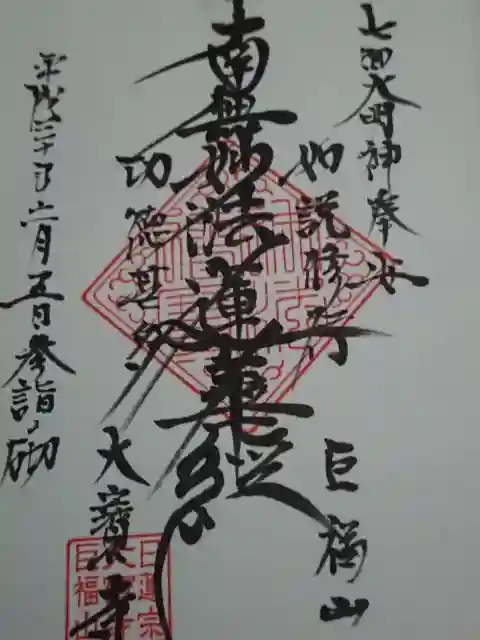 七面大明神奉安
如説修行
巨福山
南無妙法蓮華経
功徳甚多
大寶寺
平成二十年六月五日参詣ノ砌
日蓮宗
巨福山